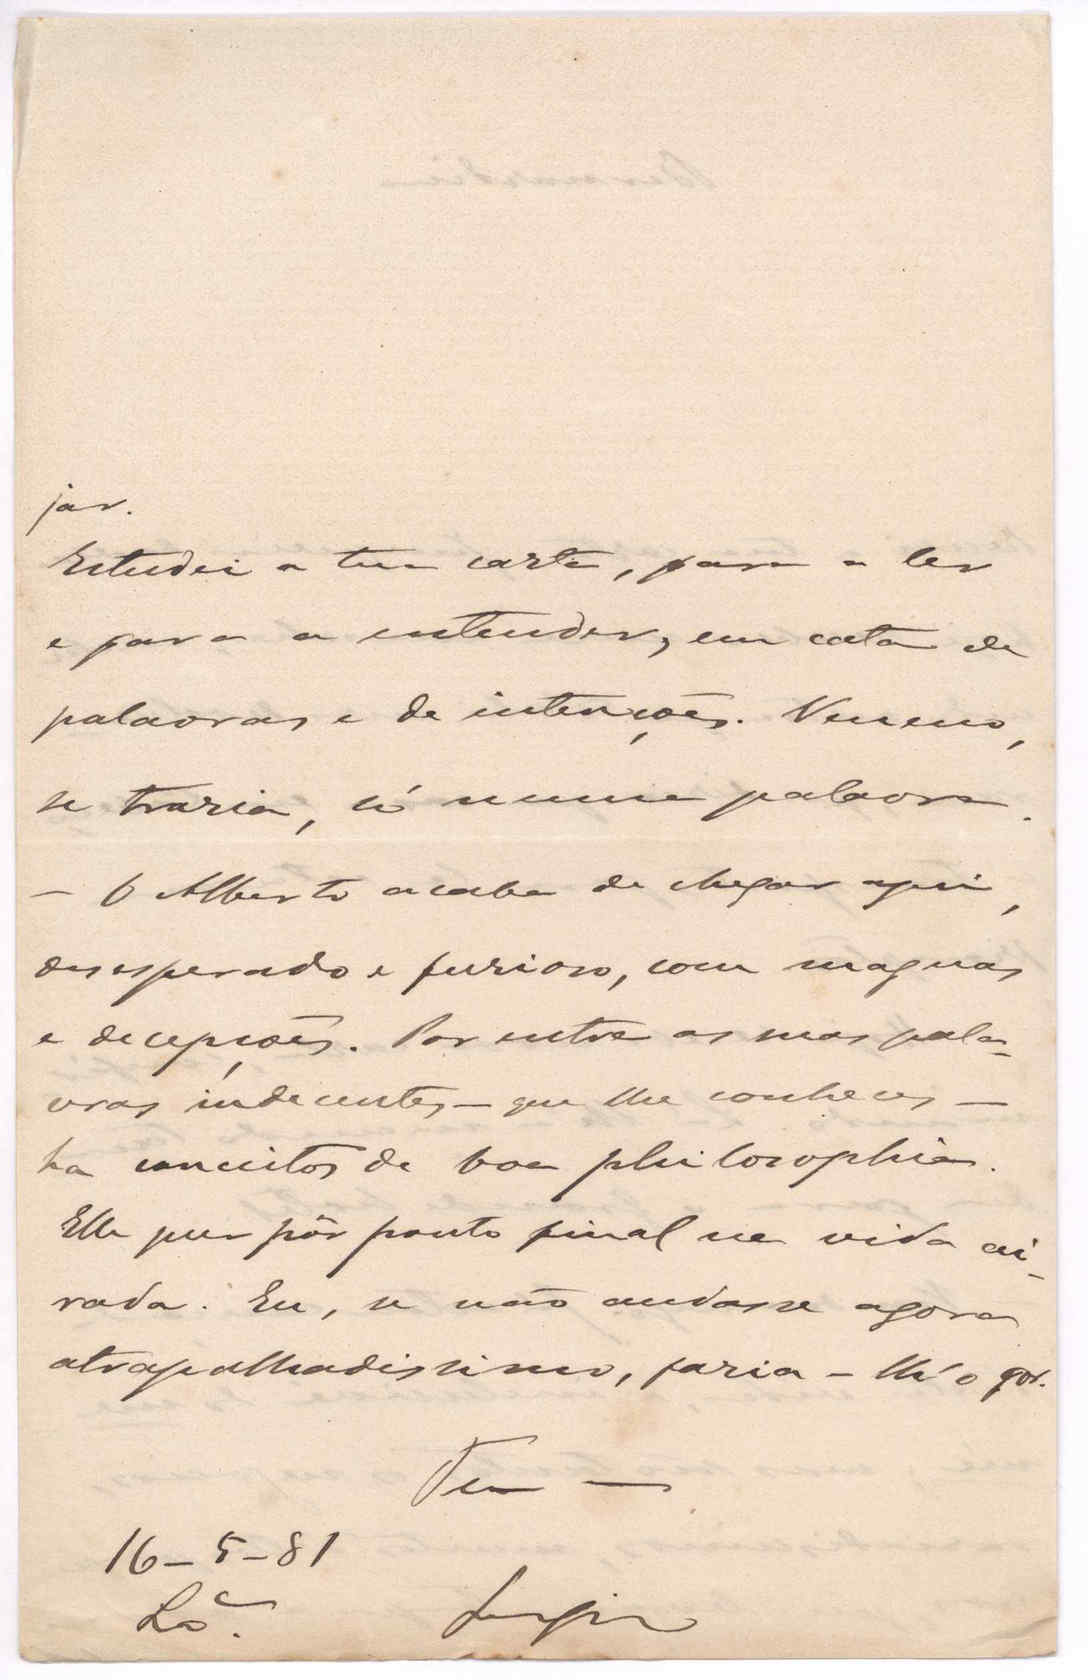 jar.
Estudei a tua carta, para a ler
e para a entender, em cata de
palavras e de intenções. Veneno,
se trazia, só numa palavra.
— O Alberto acaba de chegar aqui,
desesperado e furioso, com maguas
e decepções. Por entre as suas pala-
vras indecentes — que lhe conheces —
ha conceitos de boa philosophia.
Elle quer pôr ponto final na vida ai-
rada. Eu, se não andasse agora
atrapalhadissimo, faria-lh'o por.
Teu —
16-5-81